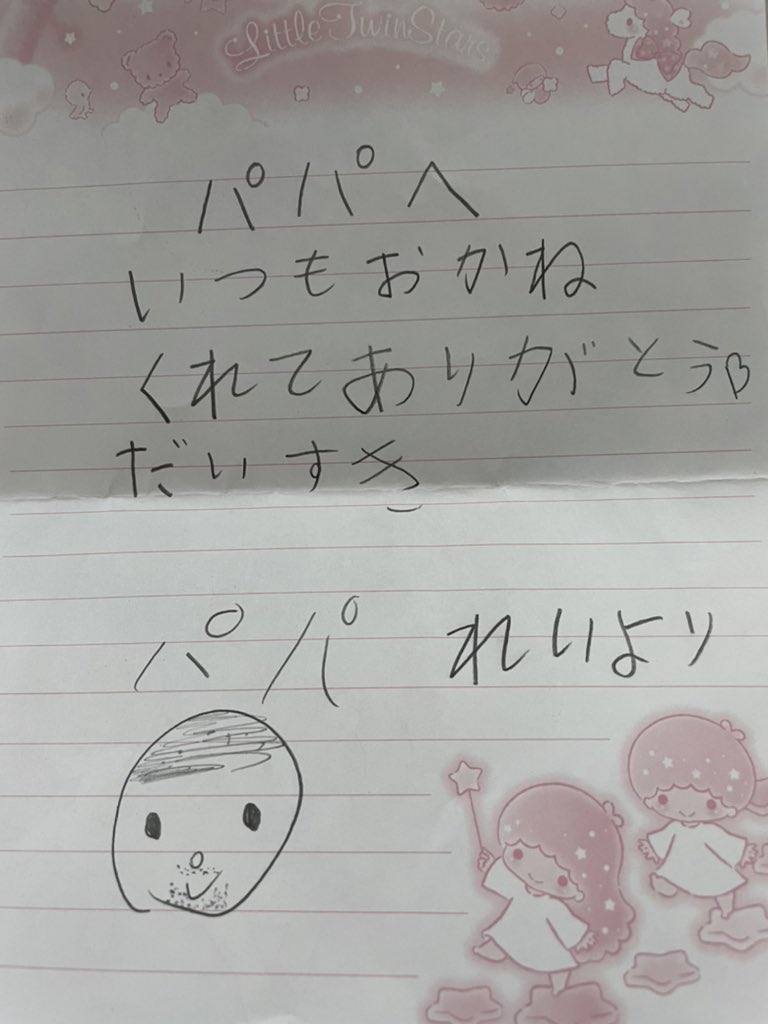 Little Twin Stars
パパへ
いつもおかね
くれてありがとう♡
だいすき
パパ れいより